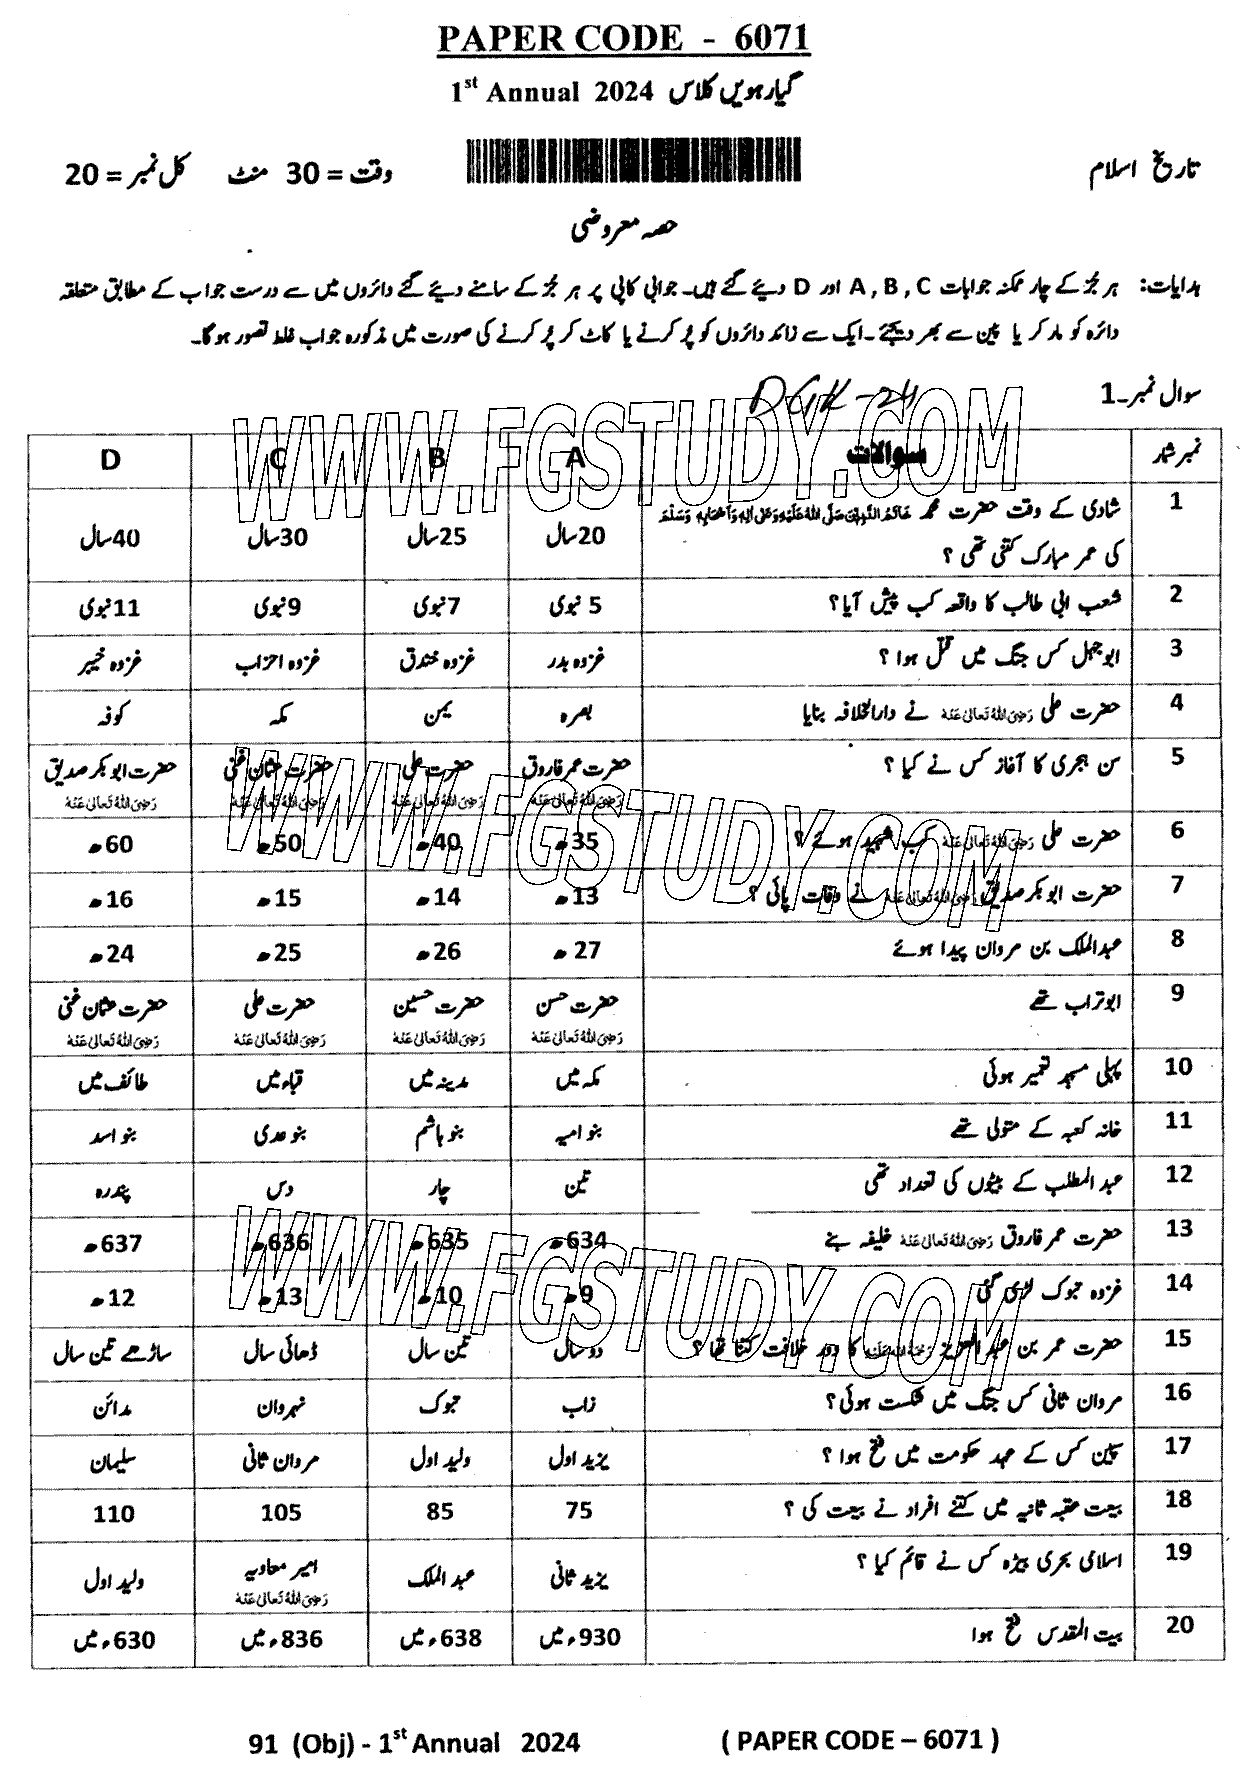 PAPER CODE - 6071
1st Annual 2024 گیارہویں کلاس
تاریخ اسلام وقت = 30 منٹ کل نمبر = 20
حصہ معروضی
ہدایات: ہر جُز کے چار ممکنہ جوابات A , B , C اور D دیئے گئے ہیں۔ جوابی کاپی پر ہر جُز کے سامنے دیئے گئے دائروں میں سے درست جواب کے مطابق متعلقہ
دائرہ کو مارکر یا پین سے بھر دیجئے۔ ایک سے زائد دائروں کو پُر کرنے یا کاٹ کر پُر کرنے کی صورت میں مذکورہ جواب غلط تصور ہوگا۔
سوال نمبر۔1 DGK-24
نمبر شمار سوالات A B C D
1 شادی کے وقت حضرت محمد خَاتَمُ النَّبِیّٖنَ صَلَّی اللہُ عَلَیْہِ وَعَلٰی اٰلِہٖ وَاَصْحَابِہٖ وَسَلَّمَ
کی عمر مبارک کتنی تھی ؟ 20سال 25سال 30سال 40سال
2 شعب ابی طالب کا واقعہ کب پیش آیا؟ 5 نبوی 7 نبوی 9 نبوی 11 نبوی
3 ابوجہل کس جنگ میں قتل ہوا ؟ غزوہ بدر غزوہ خندق غزوہ احزاب غزوہ خیبر
4 حضرت علی رَضِیَ اللہُ تَعَالٰی عَنْہُ نے دارالخلافہ بنایا بصرہ یمن مکہ کوفہ
5 سن ہجری کا آغاز کس نے کیا ؟ حضرت عمر فاروق حضرت علی حضرت عثمان غنی حضرت ابوبکر صدیق
رَضِیَ اللہُ تَعَالٰی عَنْہُ رَضِیَ اللہُ تَعَالٰی عَنْہُ رَضِیَ اللہُ تَعَالٰی عَنْہُ رَضِیَ اللہُ تَعَالٰی عَنْہُ
6 حضرت علی رَضِیَ اللہُ تَعَالٰی عَنْہُ کب شہید ہوئے ؟ 35ھ 40ھ 50ھ 60ھ
7 حضرت ابوبکر صدیق رَضِیَ اللہُ تَعَالٰی عَنْہُ نے وفات پائی ؟ 13ھ 14ھ 15ھ 16ھ
8 عبدالملک بن مروان پیدا ہوئے 27ھ 26ھ 25ھ 24ھ
9 ابوتراب تھے حضرت حسن حضرت حسین حضرت علی حضرت عثمان غنی
رَضِیَ اللہُ تَعَالٰی عَنْہُ رَضِیَ اللہُ تَعَالٰی عَنْہُ رَضِیَ اللہُ تَعَالٰی عَنْہُ رَضِیَ اللہُ تَعَالٰی عَنْہُ
10 پہلی مسجد تعمیر ہوئی مکہ میں مدینہ میں قباء میں طائف میں
11 خانہ کعبہ کے متولی تھے بنو امیہ بنو ہاشم بنو عدی بنو اسد
12 عبدالمطلب کے بیٹوں کی تعداد تھی تین چار دس پندرہ
13 حضرت عمر فاروق رَضِیَ اللہُ تَعَالٰی عَنْہُ خلیفہ بنے 634ھ 635ھ 636ھ 637ھ
14 غزوہ تبوک لڑی گئی 9ھ 10ھ 13ھ 12ھ
15 حضرت عمر بن عبدالعزیز رَحْمَۃُ اللہِ عَلَیْہِ کا دور خلافت کتنا تھا ؟ دو سال تین سال ڈھائی سال ساڑھے تین سال
16 مروان ثانی کس جنگ میں شکست ہوئی؟ زاب تبوک نہروان مدائن
17 سپین کس کے عہد حکومت میں فتح ہوا ؟ یزید اول ولید اول مروان ثانی سلیمان
18 بیعت عقبہ ثانیہ میں کتنے افراد نے بیعت کی ؟ 75 85 105 110
19 اسلامی بحری بیڑہ کس نے قائم کیا ؟ یزید ثانی عبدالملک امیر معاویہ ولید اول
رَضِیَ اللہُ تَعَالٰی عَنْہُ
20 بیت المقدس فتح ہوا 930ء میں 638ء میں 836ء میں 630ء میں
WWW.FGSTUDY.COM
WWW.FGSTUDY.COM
WWW.FGSTUDY.COM
91 (Obj) - 1st Annual 2024 ( PAPER CODE – 6071 )